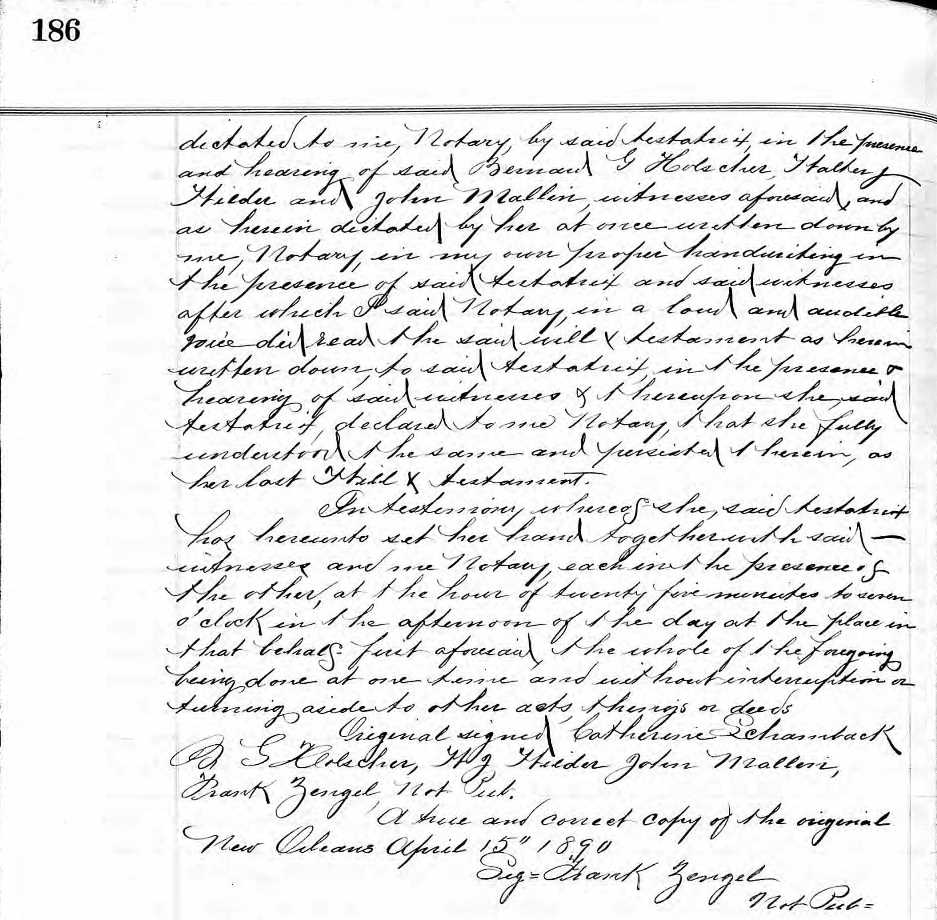 186
dictated to me, Notary, by said testatrix, in the presence
and hearing of said Bernard G Holscher, Walter J
Wilder and John Mallin, witnesses aforesaid, and
as herein dictated by her at once written down by
me, Notary, in my own proper handwriting in
the presence of said testatrix and said witnesses
after which I said Notary, in a loud and audible
voice did read the said will & testament as herein
written down, to said testatrix, in the presence &
hearing of said witnesses & thereupon she, said
testatrix, declared to me Notary, that she fully
understood the same and persisted therein, as
her last Will & testament.
In testimony whereof she, said testatrix
has hereunto set her hand together with said —
witnesses and me Notary, each in the presence of
the other, at the hour of twenty five minutes to seven
o'clock in the afternoon of the day at the place in
that behalf first aforesaid, the whole of the foregoing
being done at one time and without interruption or
turning aside to other acts, things or deeds
Original signed Catherine Schamback
B G Holscher, W J Wilder John Mallin,
Frank Zengel, Not Pub.
A true and correct copy of the original
New Orleans April 15" 1890
Sig= Frank Zengel
Not Pub=